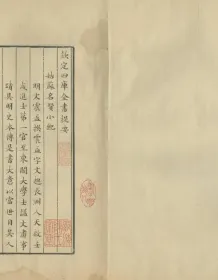 欽定四庫全書提要
姑蘇名賢小紀
明文震孟撰震孟字文起長洲人天啟壬
戌進士第一官至東閣大學士諡文肅事
蹟具明史本傳是書大意以當世目吳人